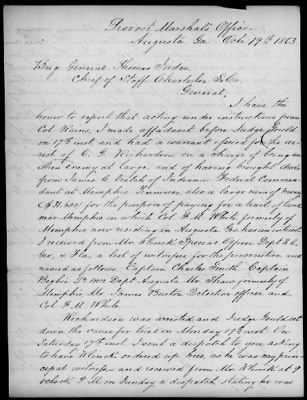 Provost Marshal's Office
Augusta Ga Octr 19th 1863
Brig General Thomas Jordan
Chief of Staff Charleston So Ca.
General,
I have the
honor to report that acting under instructions from
Col Rains, I made affadavit before Judge Gould
on 17th inst and had a warrant issued for the ar-
rest of C. F. Richardson on a charge of being an
Alien enemy at large, and of having bought
from James C. Veatch of Indiana Federal Comman-
dant at Memphis Tennessee also a large sum of money
for the purpose of paying for a boat of
near Memphis in which Col F. M. White formerly of
Memphis now residing in Augusta Ga. has an interest
I received from Mr Klinck Special Officer Dept S.C.
Geo, & Fla. a list of witnesses for the prosecution and
named as follows Captain Charles Smith Captain
Augusta Mr Shaw formerly of
Memphis Mr James Detective officer and
Col F. M. White
Richardson was arrested and Judge Gould set
down the cause for trial on Monday 19th inst. On
Saturday 17th inst I sent a dispatch to you asking
to have Klinck ordered up here, as he was my prin-
cipal witness and received from Mr Klinck at 9
o'clock P.M. on Sunday a dispatch stating he was